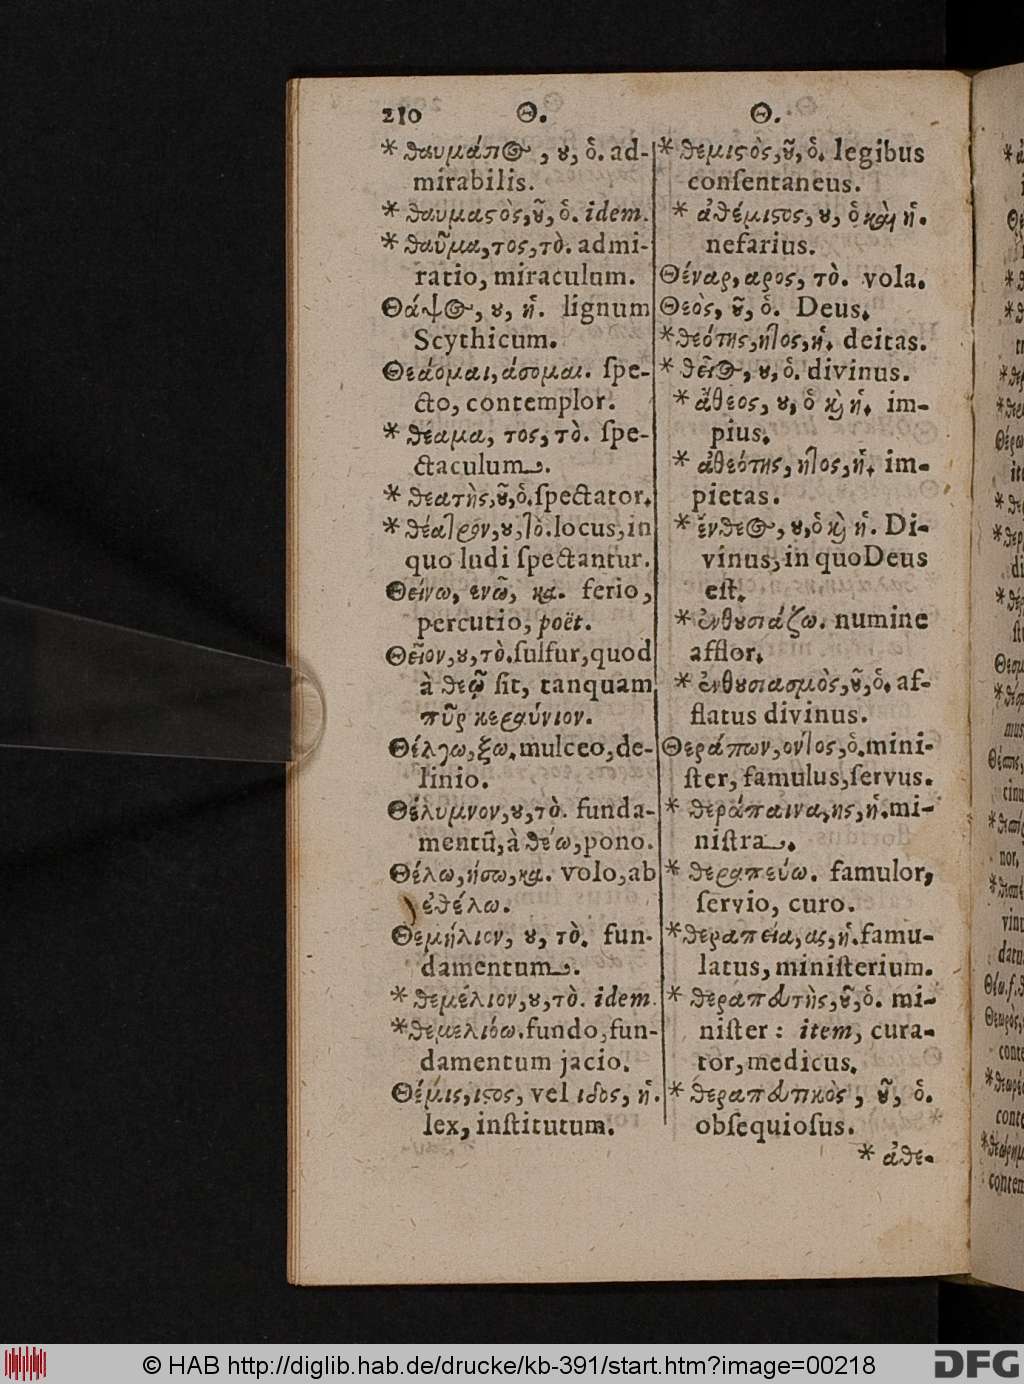 210 Θ. Θ.
* θαυμάσιος, ου, ὁ. ad-
mirabilis.
* θαυμαςὸς, οῦ, ὁ. idem.
* θαῦμα, τος, τὸ. admi-
ratio, miraculum.
Θάψος, ου, ἡ. lignum
Scythicum.
Θεάομαι, άσομαι. ſpe-
cto, contemplor.
* θέαμα, τος, τὸ. ſpe-
ctaculum.
* θεατὴς, οῦ, ὁ. ſpectator.
* θέατρον, ου, τὸ. locus, in
quo ludi ſpectantur.
Θείνω, ενῶ, κα. ferio,
percutio, poët.
Θεῖον, ου, τὸ. ſulfur, quod
à θεῷ ſit, tanquam
πῦρ κεραύνιον.
Θέλγω, ξω. mulceo, de-
linio.
Θέλυμνον, ου, τὸ. funda-
mentũ, à θέω, pono.
Θέλω, ήσω, κα. volo, ab
ἐθέλω.
Θεμήλιον, ου, τὸ. fun-
damentum.
* θεμέλιον, ου, τὸ. idem.
* θεμελιόω. fundo, fun-
damentum jacio.
Θέμις, ιςος, vel ιδος, ἡ.
lex, inſtitutum.
* θεμιςὸς, οῦ, ὁ. legibus
conſentaneus.
* ἀθέμιςος, ου, ὁ καὶ ἡ.
nefarius.
Θέναρ, αρος, τὸ. vola.
Θεὸς, οῦ, ὁ. Deus.
* θεότης, ητος, ἡ. deitas.
* θεῖος, ου, ὁ. divinus.
* ἄθεος, ου, ὁ καὶ ἡ. im-
pius.
* ἀθεότης, ητος, ἡ. im-
pietas.
* ἔνθεος, ου, ὁ καὶ ἡ. Di-
vinus, in quo Deus
eſt.
* ἐνθουσιάζω. numine
afflor.
* ἐνθουσιασμὸς, οῦ, ὁ. af-
flatus divinus.
Θεράπων, οντος, ὁ. mini-
ſter, famulus, ſervus.
* θεράπαινα, ης, ἡ. mi-
niſtra.
* θεραπεύω. famulor,
ſervio, curo.
* θεραπεία, ας, ἡ. famu-
latus, miniſterium.
* θεραπευτὴς, οῦ, ὁ. mi-
niſter: item, cura-
tor, medicus.
* θεραπευτικὸς, οῦ, ὁ.
obſequioſus.
* ἀθε-
© HAB http://diglib.hab.de/drucke/kb-391/start.htm?image=00218
DFG